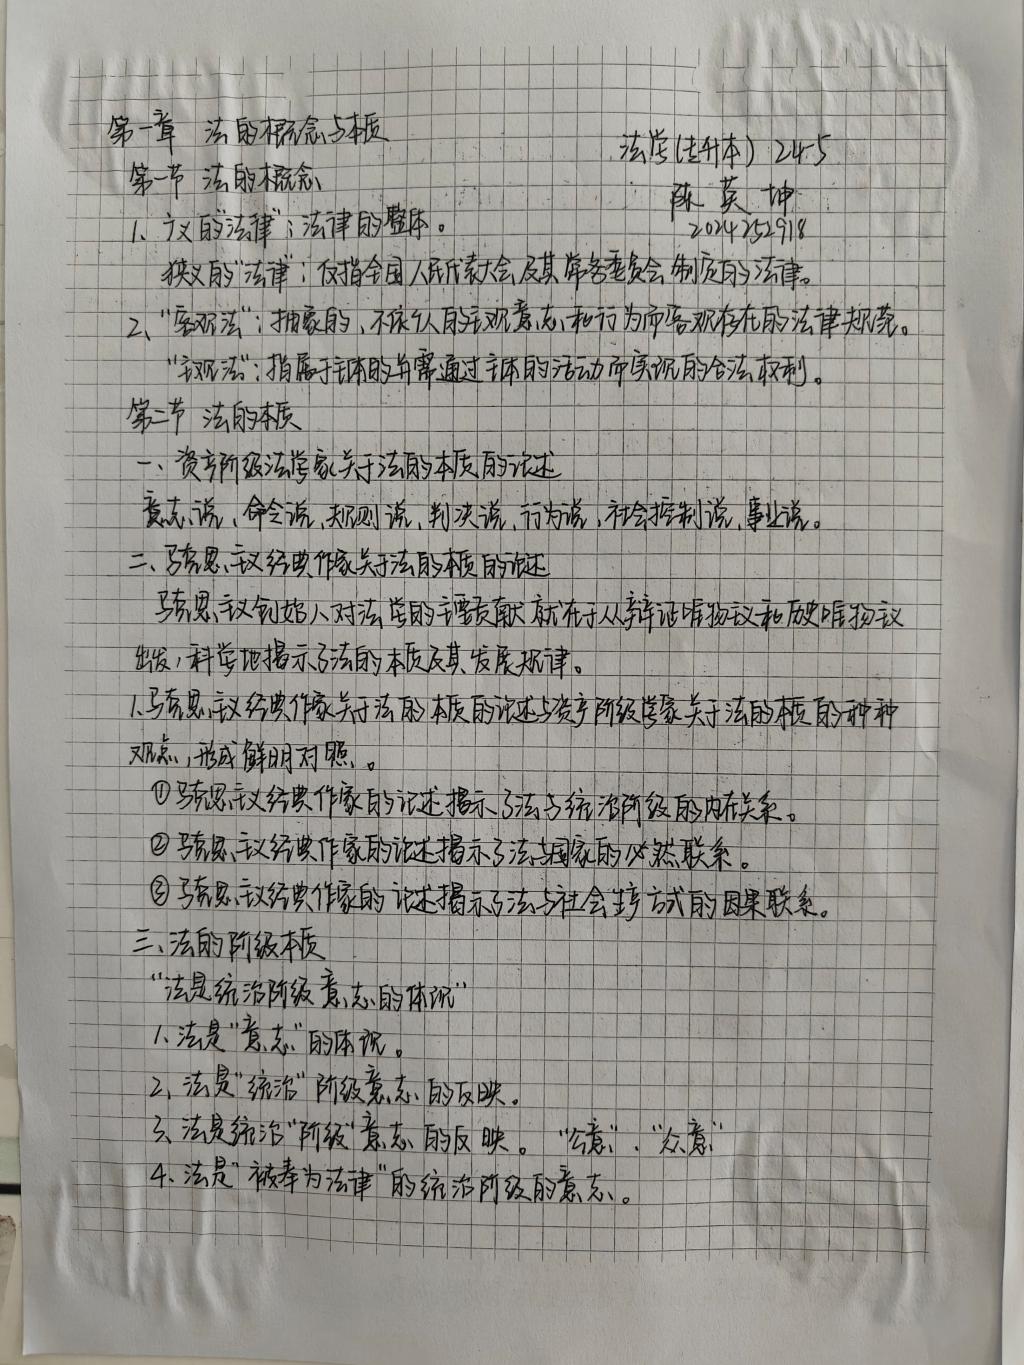 第一章 法的概念与本质
法学(专升本) 24-5
第一节 法的概念
陈英坤
2024252918
1、广义的"法律"：法律的整体。
狭义的"法律"：仅指全国人民代表大会及其常务委员会制定的法律。
2、"客观法"：抽象的、不依个人的主观意志和行为而客观存在的法律规范。
"主观法"：指属于主体的并需通过主体的活动而实现的合法权利。
第二节 法的本质
一、资产阶级法学家关于法的本质的论述
意志说、命令说、规则说、判决说、行为说、社会控制说、事业说。
二、马克思主义经典作家关于法的本质的论述
马克思主义创始人对法学的主要贡献就在于从辩证唯物主义和历史唯物主义
出发，科学地揭示了法的本质及其发展规律。
1、马克思主义经典作家关于法的本质的论述与资产阶级学家关于法的本质的种种
观点，形成鲜明对照。
①马克思主义经典作家的论述揭示了法与统治阶级的内在关系。
②马克思主义经典作家的论述揭示了法与国家的必然联系。
③马克思主义经典作家的论述揭示了法与社会生产方式的因果联系。
三、法的阶级本质
"法是统治阶级意志的体现"
1、法是"意志"的体现。
2、法是"统治"阶级意志的反映。
3、法是统治"阶级"意志的反映。"公意"、"众意"
4、法是"被奉为法律"的统治阶级的意志。